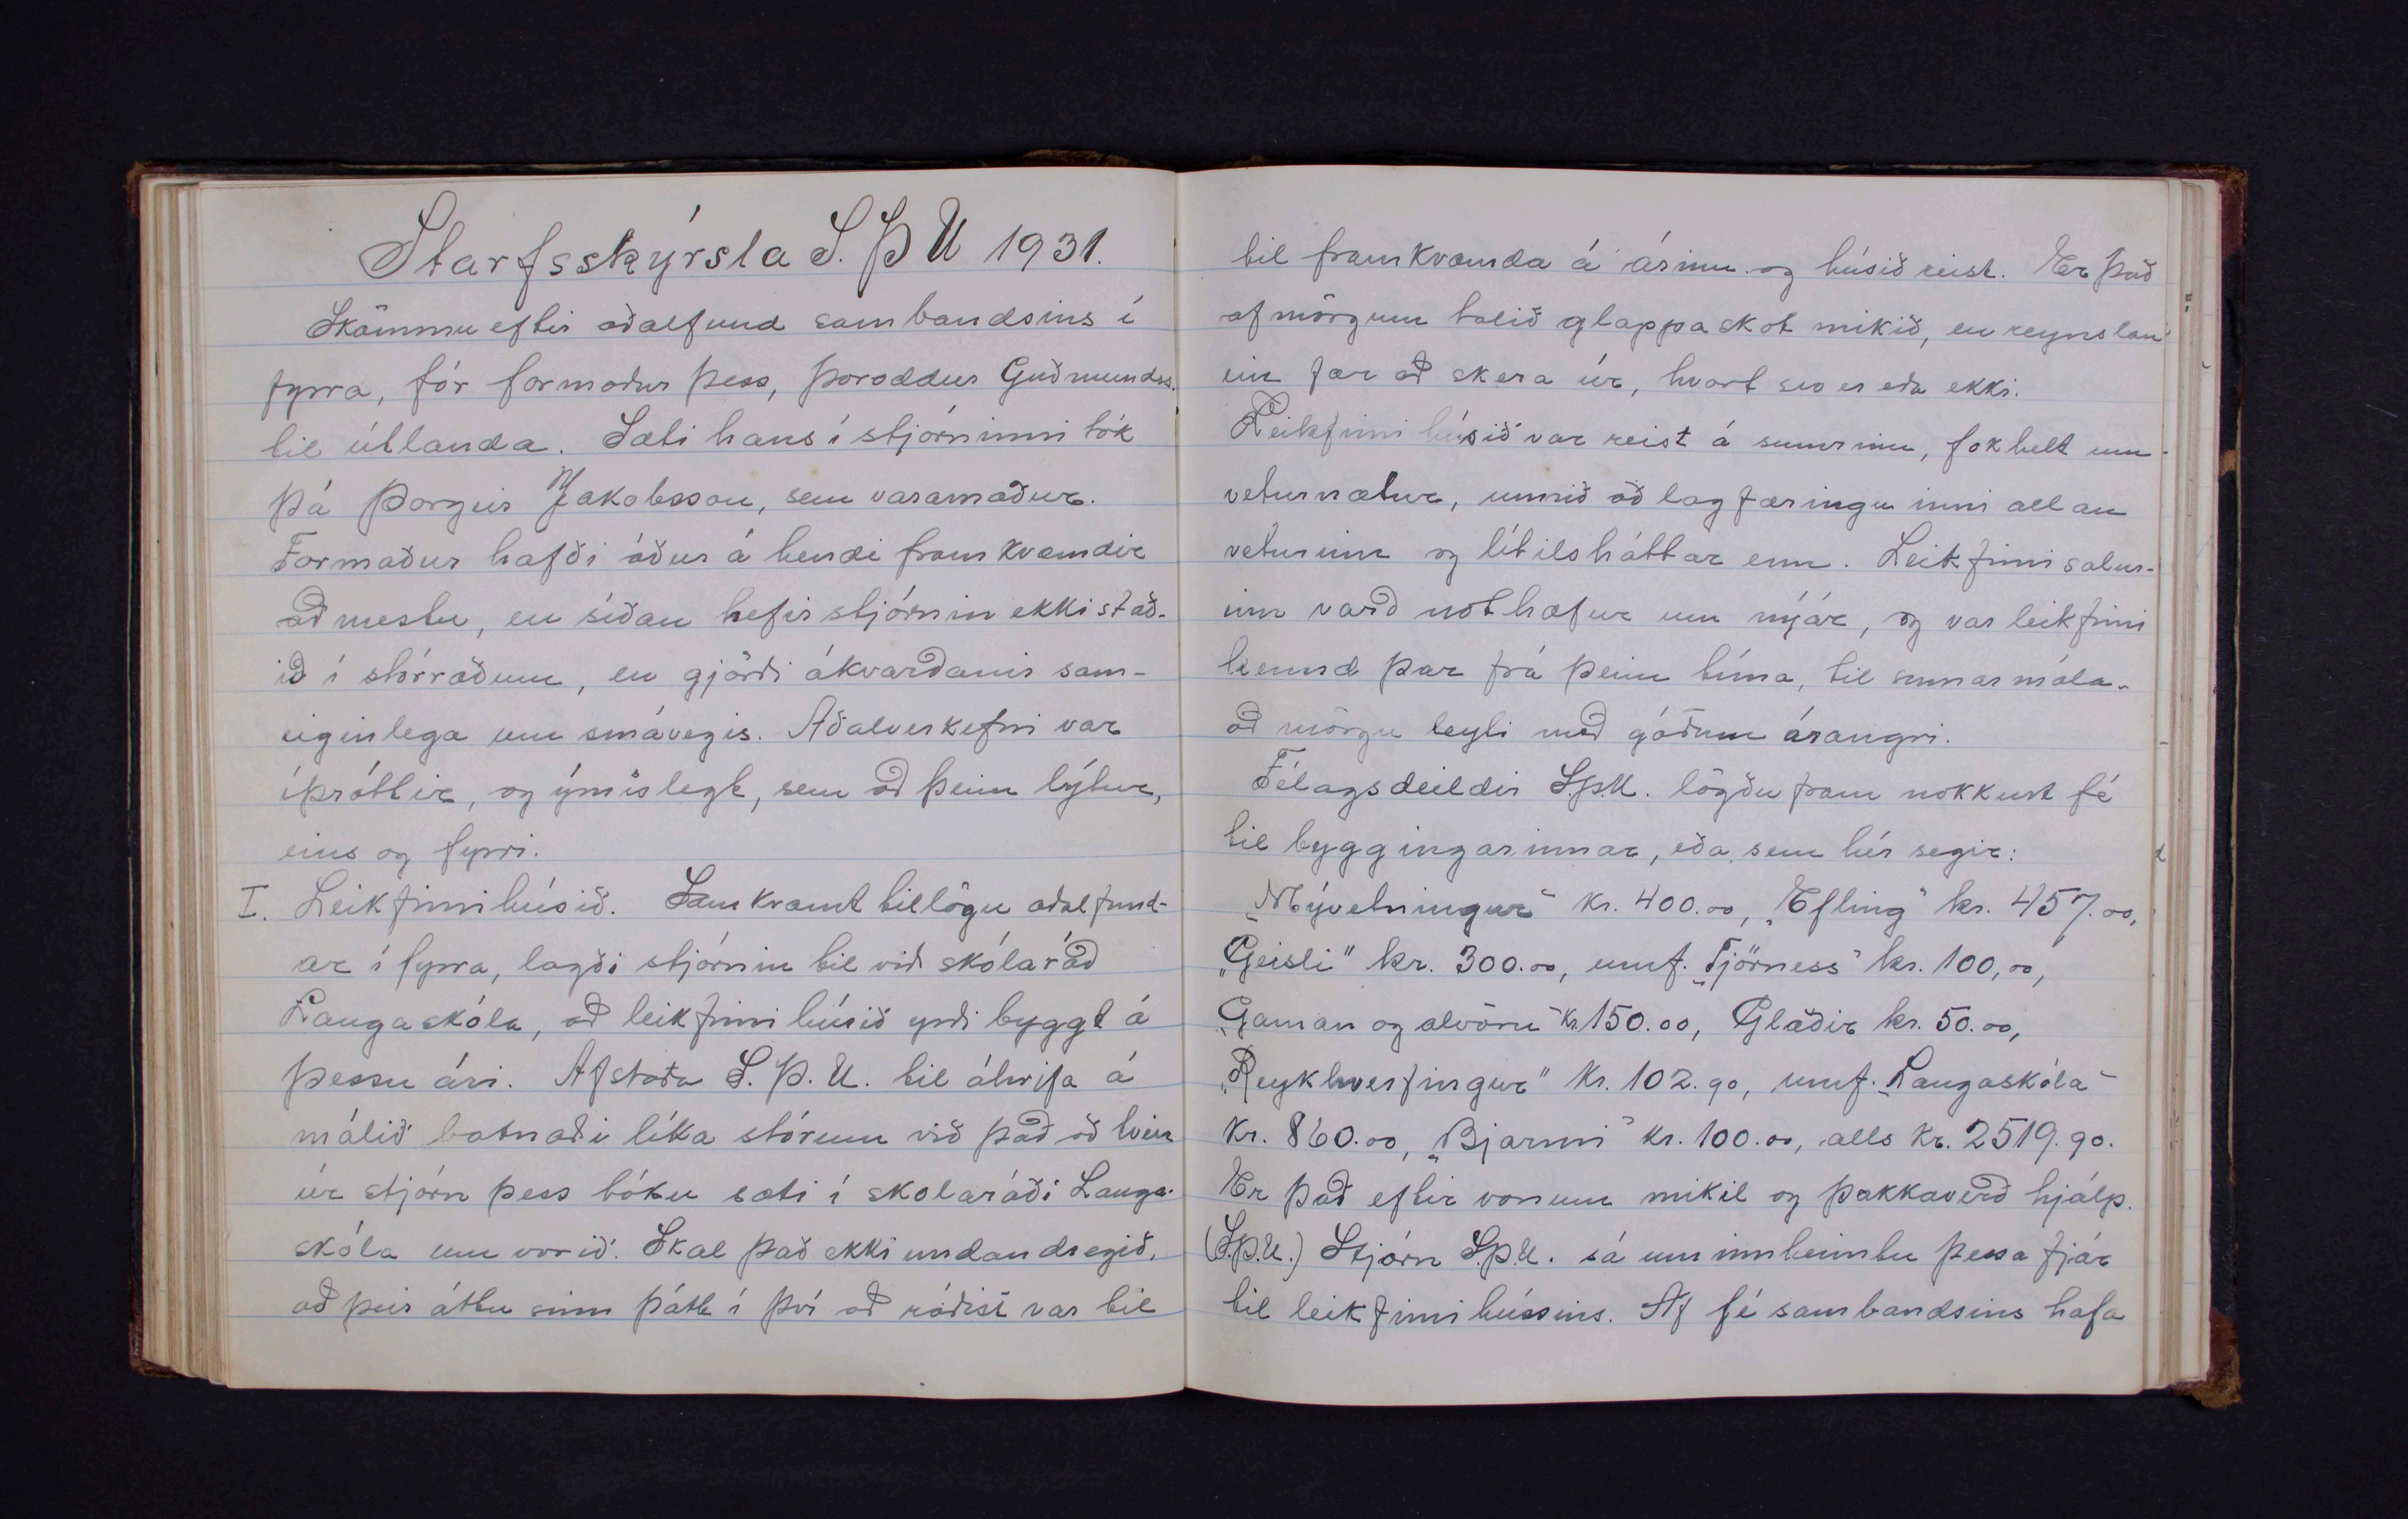 Starfsskýrsla S. Þ U 1931.
Skömmu eftir aðalfund sambandsins í
fyrra, fór formaður þess, Þoroddur Guðmundss.
til útlanda. Sæti hans í stjórninni tók
þá Þorgeir Jakobsson, sem varamaður.
Formaður hafði áður á hendi framkvæmdir
að mestu, en síðan hefir stjórnin ekki stað-
ið í stórræðum, en gjörði ákvarðanir sam-
eiginlega um smávegis. Aðalverkefni var
íþróttir, og ýmislegt, sem að þeim lýtur,
eins og fyrri.
I. Leikfimihúsið. Samkvæmt tillögu aðalfund-
ar í fyrra, lagði stjórnin til við skólaráð
Laugaskóla, að leikfimihúsið yrði byggt á
þessu ári. Afstaða S. Þ. U. til áhrifa á
málið batnaði líka stórum við það að tveir
úr stjórn þess tóku sæti í skolaráði Lauga-
skóla um vorið. Skal það ekki undandregið,
að þeir áttu sinn þátt í því að ráðist var til
til framkvæmda á árinu og húsið reist. Er það
af mörgum talið glappaskot mikið, en reynslan
ein fær að skera úr, hvort svo er eða ekki.
Leikfimihúsið var reist á sumrinu, fokhelt um
veturnætur, unnið að lagfæringu inni allan
veturinn og lítilsháttar enn. Leikfimisalur-
inn varð nothæfur um nýár, og var leikfimi
kennd þar frá þeim tíma, til sumarmála-
að mörgu leyti með góðum árangri.
Félagsdeildir S.Þ.U. lögðu fram nokkurt fé
til byggingarinnar, eða sem hér segir:
„Mývetningur" kr. 400.00, „Efling" kr. 457.00,
„Geisli" kr. 300.00, umf. „Tjörness" kr. 100,00,
„Gaman og alvöru" kr. 150.00, Glæðir kr. 50.00,
„Reykhverfingur" kr. 102.90, umf. „Laugaskóla"
kr. 860.00, „Bjarmi" kr. 100.00, alls kr. 2519.90.
Er það eftir vonum mikil og þakkaverð hjálp.
(S.Þ.U.) Stjórn S.Þ.U. sá um innheimtu þessa fjár
til leikfimihússins. Af fé sambandsins hafa